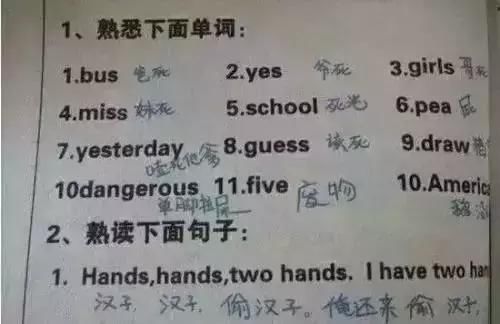 1、熟悉下面单词:
1.bus 爸死 2.yes 爷死 3.girls 哥死
4.miss 妹死 5.school 死光 6.pea 屁
7.yesterday 8.guess 该死 9.draw
噎死他爹
10dangerous 11.five 废物 10.America
单脚拉屎
2、熟读下面句子:
1. Hands,hands,two hands. I have two han
汉子,汉子,偷汉子。俺还来偷汉子,